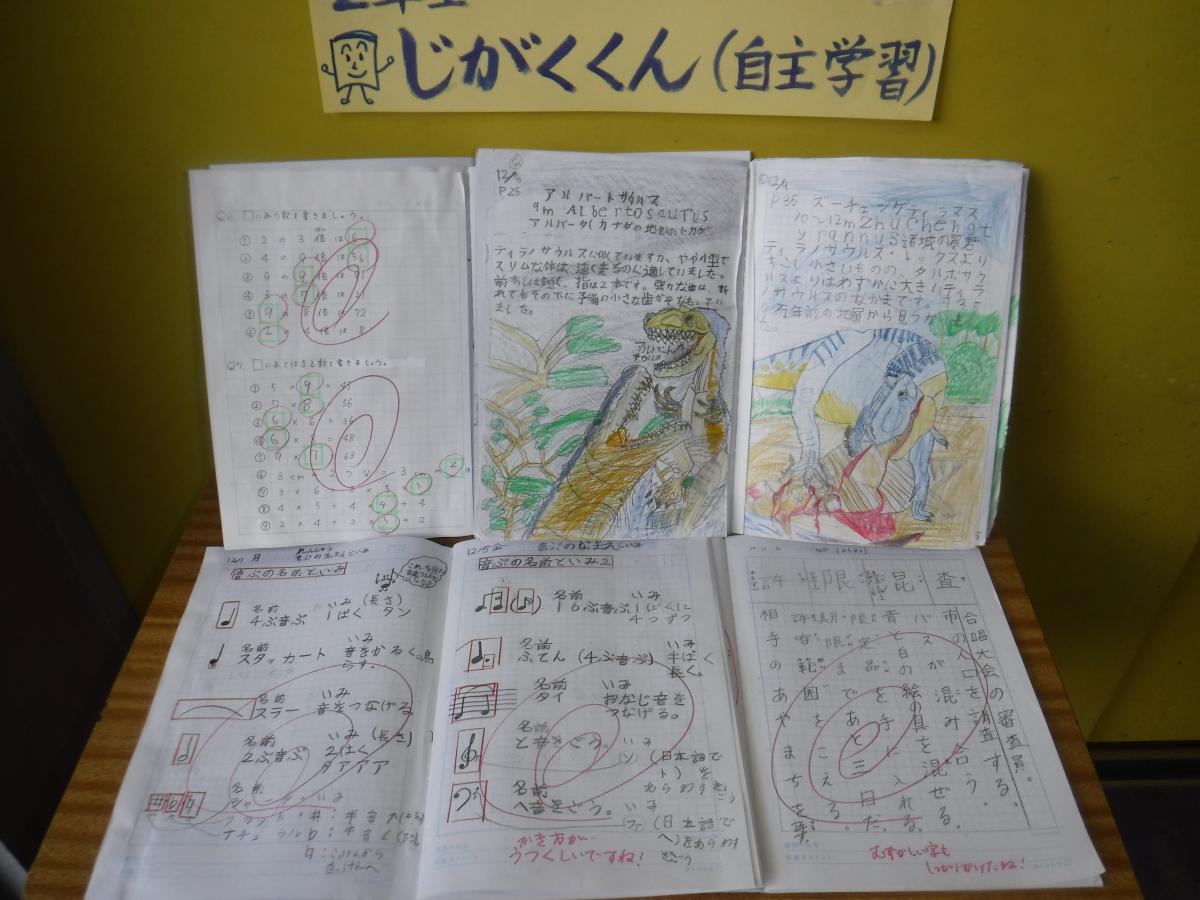 2年生
じがくくん(自主学習)
Q6. □にあう数を書きましょう。
① 2 の 3 倍は 6
Q7. □にあてはまる数を書きましょう。
① 5 × 9 = 45
② 7 × 8 = 56
③ 6 × 6 = 36
⑤ 9 × 7 = 63
⑧ 4 × 5 = 4 × 4 + 4
⑨ 2 × 4 = 2 × 3 + 2
P25
アルバートサウルス
9m Albertosaurus
アルバータ(カナダの地名)のトカゲ
ティラノサウルスに似ていますが、やや小型で
スリムな体は、速く走るのに適していました。
前あしは短く、指は2本です。強力な歯は、折
れてもその下に予備の小さな歯が
ました。
アルバート
サウルス
P35 ズーチェンゲティラヌス
10〜12m Zhuchengt
yrannus 諸城の暴君
ティラノサウルス・レックスより
すこし小さいものの、タルボサウ
ルスよりはわずかに大きいティラ
ノサウルスのなかまです。
万年前の地層から見つかりまし
た。
12/1 月
れんしゅう
音ぷの名前といみ
音ぷの名前といみ
名前 いみ(長さ)
4ぶ音ぷ 1ぱく タン
名前 いみ
スタッカート 音をかるく鳴
らす。
名前 いみ
スラー 音をつなげる
名前 いみ(長さ)
2ぶ音ぷ 2はく
タアアア
名前 いみ
12/5
音ぷの名前といみ2
名前 いみ
16ぶ音ぷ 1ぱくに
4つずつ
名前 いみ
ふてん(4ぶ音ぷ) 半ぱく
長く。
名前 いみ
タイ おなじ音を
つなげる。
名前 いみ
ト音きごう。 ソ(日本語で
ト)を
あらわすきごう
名前 いみ
ヘ音きごう。 ファ(日本語で
ヘ)をあらわす
きごう
かき方が
うつくしいですね!
許 限 混 査
合唱大会の審査員。
市の人口を調査する。
バスが混み合う。
青と白の絵の具を混ぜる。
限定品を手に入れる。
あと三日だ。
範囲をこえる。
相手のあやまちを許す。
むずかしい字も
しっかりかけたね!